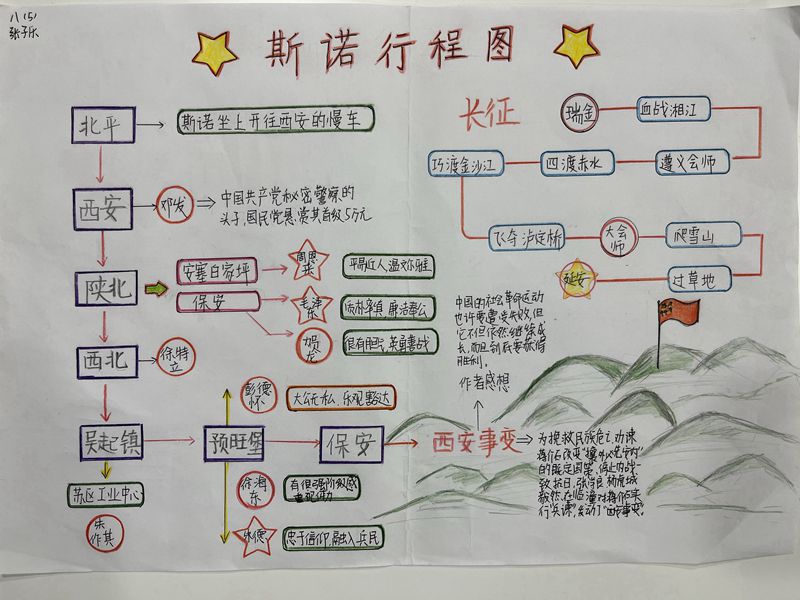 八(5)
张子乐
斯诺行程图
北平
斯诺坐上开往西安的慢车
西安
邓发
中国共产党秘密警察的
头子,国民党悬赏其首级5万元
陕北
安塞白家坪
周恩来
平易近人,温文尔雅
保安
毛泽东
质朴率真 廉洁奉公
贺龙
很有胆气 英勇善战
西北
徐特立
吴起镇
苏区工业中心
朱作其
预旺堡
彭德怀
大公无私、乐观豁达
徐海东
有很强阶级感
朱德
忠于信仰,融入兵民
保安
西安事变
长征
瑞金
血战湘江
遵义会师
四渡赤水
巧渡金沙江
飞夺泸定桥
大会师
爬雪山
过草地
延安
中国的社会革命运动
也许要遭受失败,但
它不但依然继续成
长,而且到底要获得
胜利。
作者感想
为挽救民族危亡,劝谏
蒋介石改变"攘外必先安内"
的既定国策,停止内战一
致抗日,张学良 杨虎城
毅然在临潼对蒋介石实
行兵谏,发动了"西安事变"